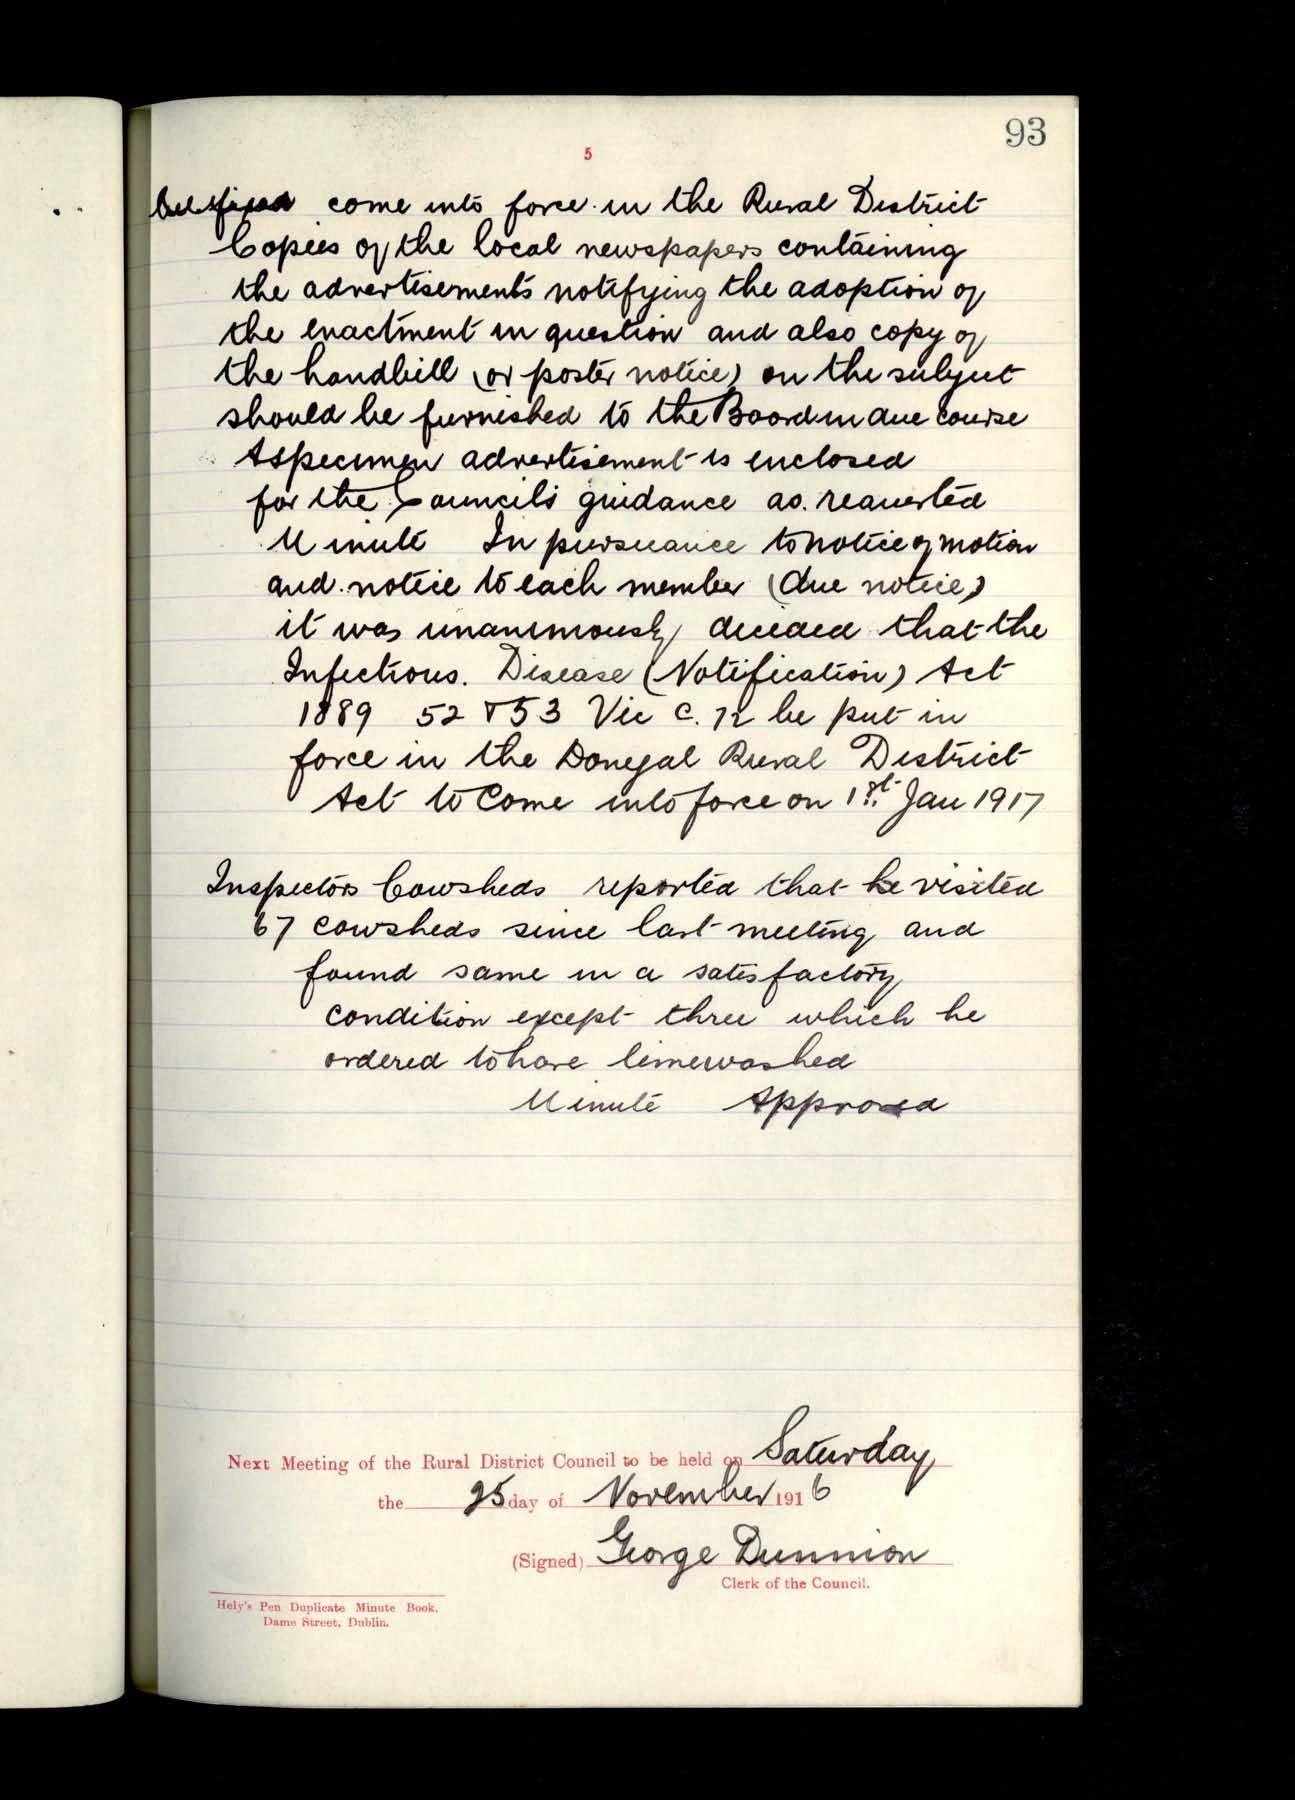 93
5
come into force in the Rural District
Copies of the local newspapers containing
the advertisements notifying the adoption of
the enactment in question and also copy of
the handbill (or poster notice) on the subject
should be furnished to the Board in due course
A specimen advertisement is enclosed
for the Council's guidance as requested
Minute In pursuance to notice of motion
and notice to each member (due notice)
it was unanimously decided that the
Infectious Disease (Notification) Act
1889 52 & 53 Vic C. 72 be put in
force in the Donegal Rural District
Act to Come into force on 1st Jan 1917
Inspectors Cowsheds reported that he visited
67 cowsheds since last meeting and
found same in a satisfactory
condition except three which he
ordered to have limewashed
Minute Approved
Next Meeting of the Rural District Council to be held on Saturday
the 25 day of November 1916
(Signed) George Dunnion
Clerk of the Council.
Hely's Pen Duplicate Minute Book,
Dame Street, Dublin.